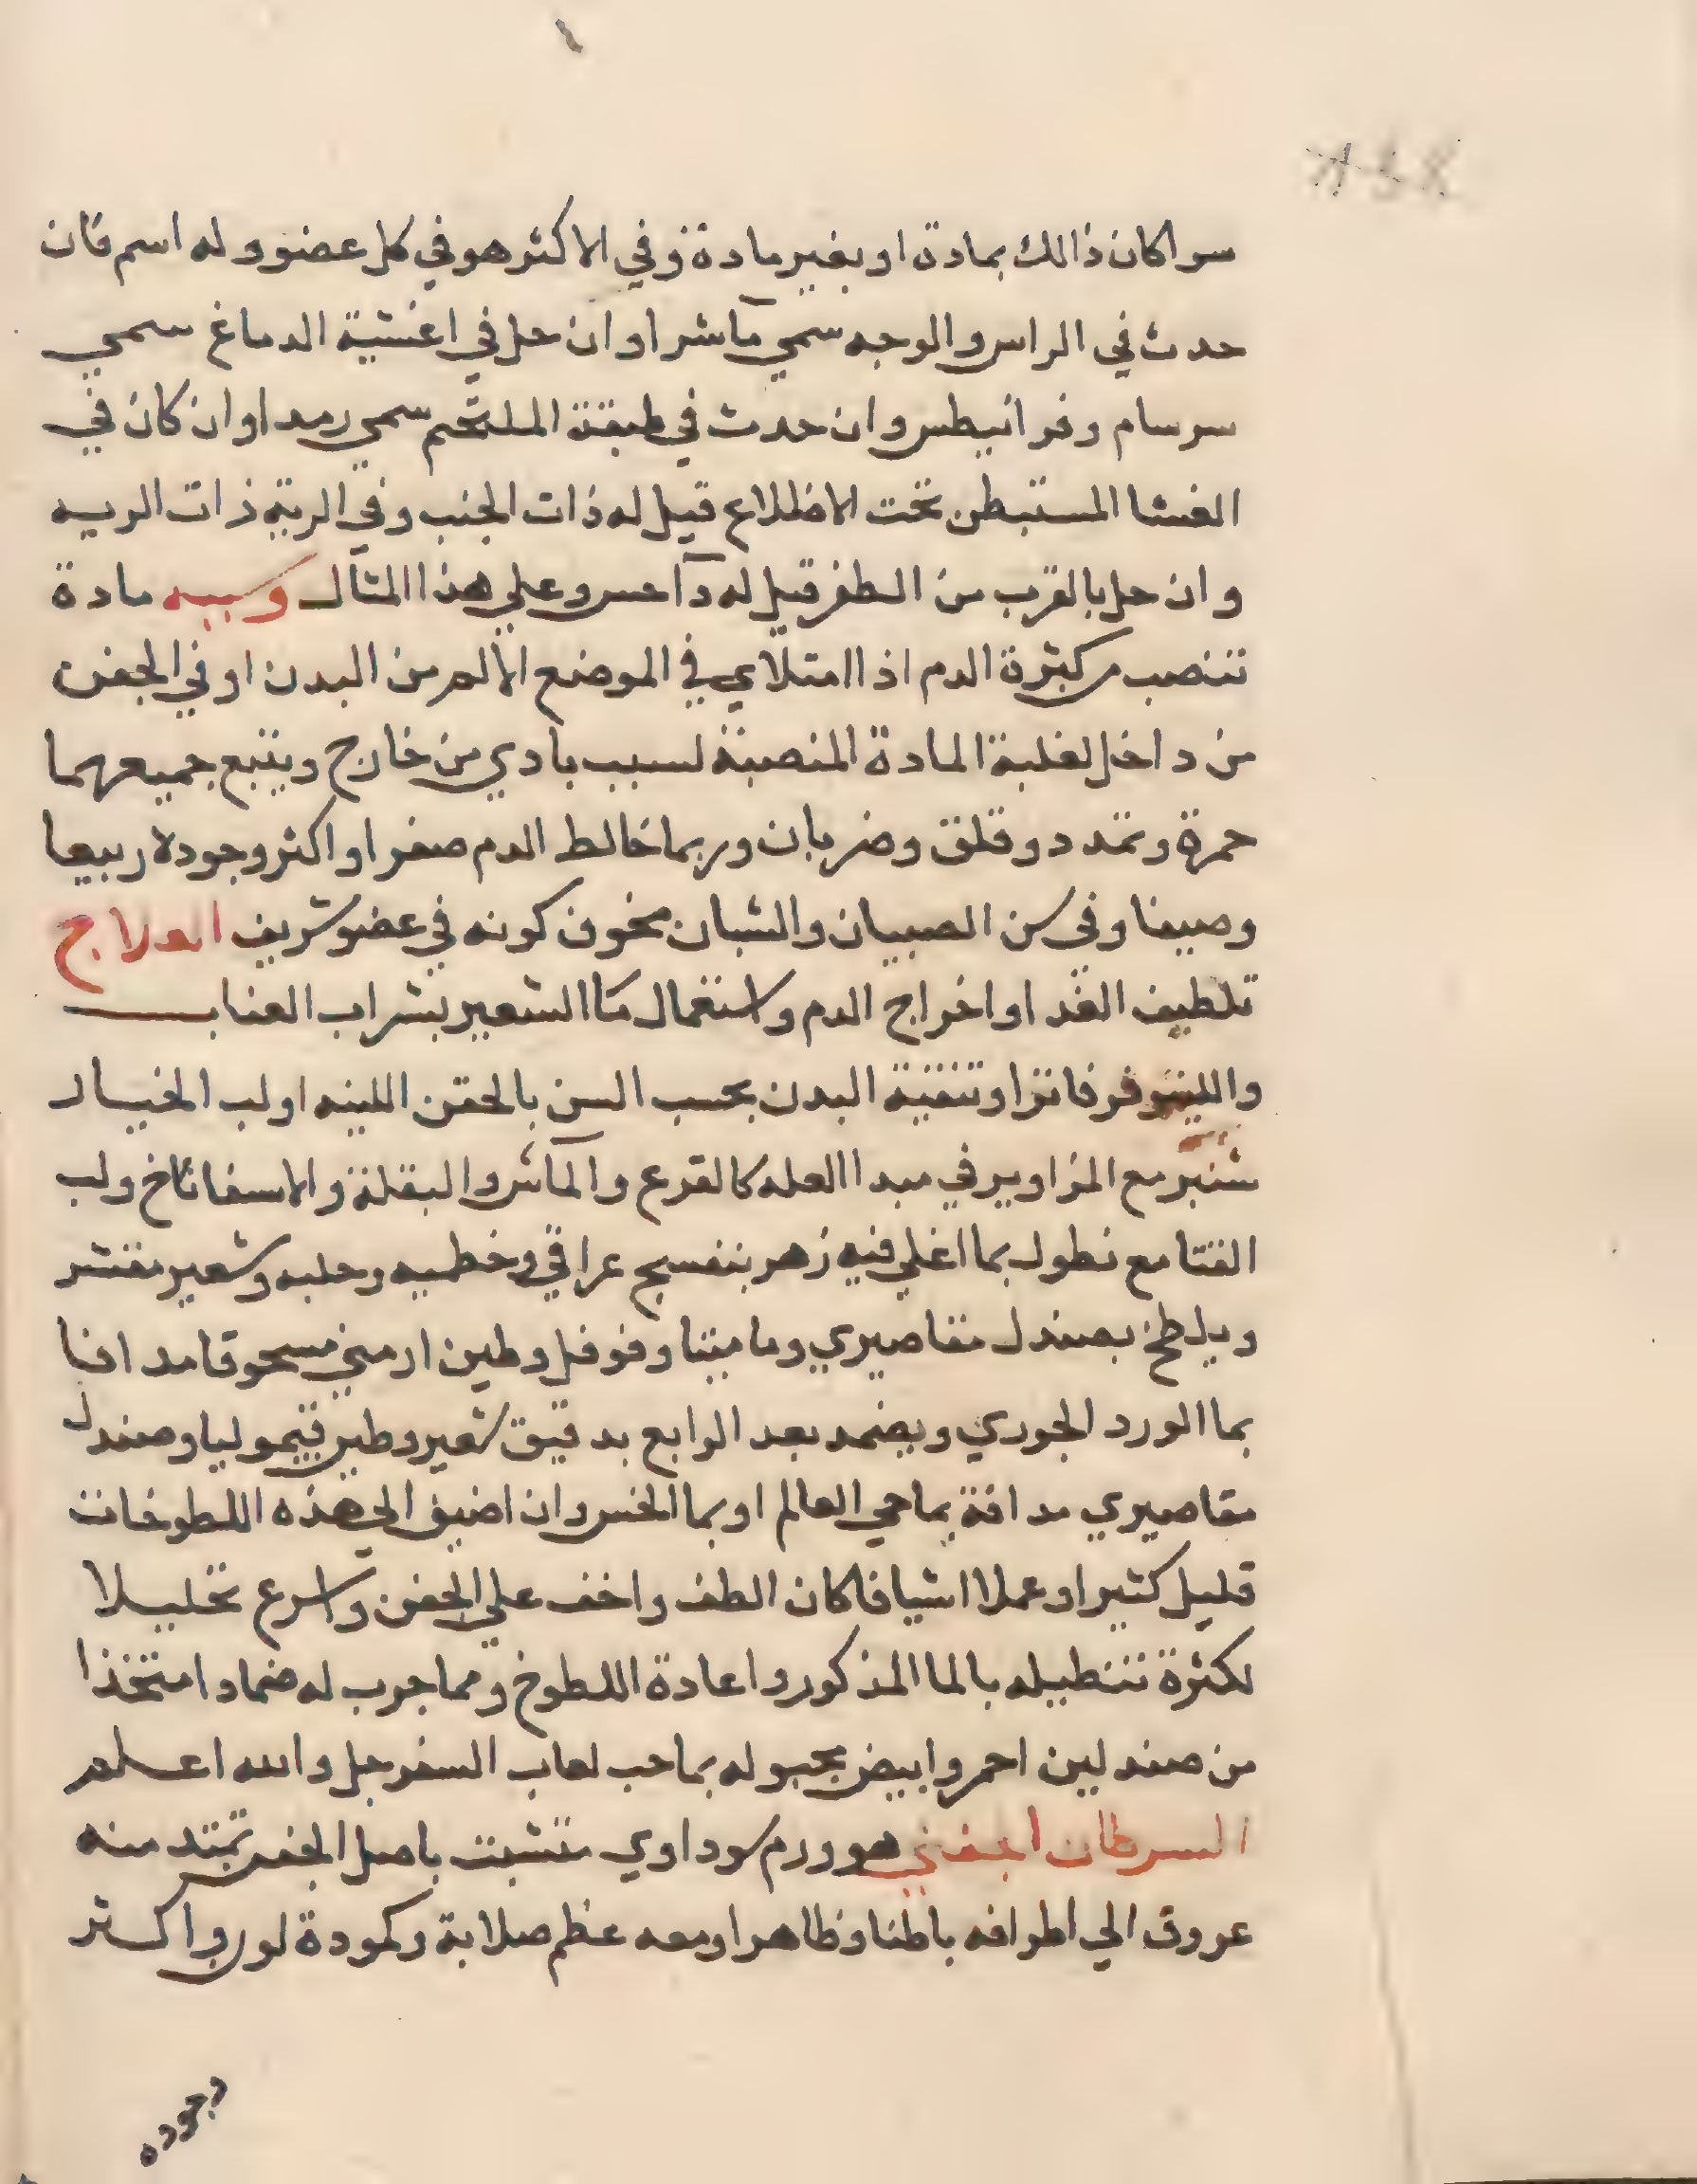 سوا كان ذالك بمادة او بغير مادة وفي الاكثر هو في كل عضو وله اسم فان
حدث في الراس والوجه سمي ماشرا وان حل في اغشية الدماغ سمي
سرسام وفرانيطس وان حدث في طبقة الملتحم سمي رمدا وان كان في
الغشا المستبطن تحت الاظلاع قيل له ذات الجنب وفي الرية ذات الريه
وان حل بالقرب من الظفر قيل له داحس وعلي هذا المثال وسببه مادة
تنصب من كثرة الدم اذا امتلا في الموضع الالم من البدن او في الجفن
من داخل لغلبة المادة المنصبة لسبب بادي من خارج ويتبع جميعهما
حمرة وتمدد وقلق وضربان وربما خالط الدم صفرا واكثر وجوده ربيعا
وصيفا وفي سن الصبيان والشبان مخوف كونه في عضو شريف العلاج
تلطيف الغدا واخراج الدم واستعمال ما الشعير بشراب العناب
واللينوفر فاترا وتنقية البدن بحسب السن بالحقن اللينه او لب الخيار
شنبر مع المزاوير في مبدا العله كالقرع والماش والبقلة والاسفاناخ ولب
القثا مع نطول بما اغلي فيه زهر بنفسج عراقي وخطميه وحلبه وشعير مقشر
ويلطخ بصندل مقاصيري وماميثا وفوفل وطين ارمني مسحوقا مدافا
بما الورد الجوري ويضمد بعد الرابع بدقيق شعير وطين قيموليا وصندل
مقاصيري مدافة بما حي العالم او بما الخس وان اضيف الي هذه اللطوخات
قليل كثيرا وعملا اشيافا كان الطف واخف علي الجفن واسرع تحليلا
لكثرة تنطيله بالما المذكور واعادة اللطوخ ومما جرب له ضمادا متخذا
من صندلين احمر وابيض مجبوله بما حب لعاب السفرجل والله اعلم
السرطان الجفني هو ورم سوداوي متشبت باصل الجفن تمتد منه
عروق الي اطرافه باطنا وظاهرا ومعه عظم صلابة وكمودة لون واكثر
وجوده